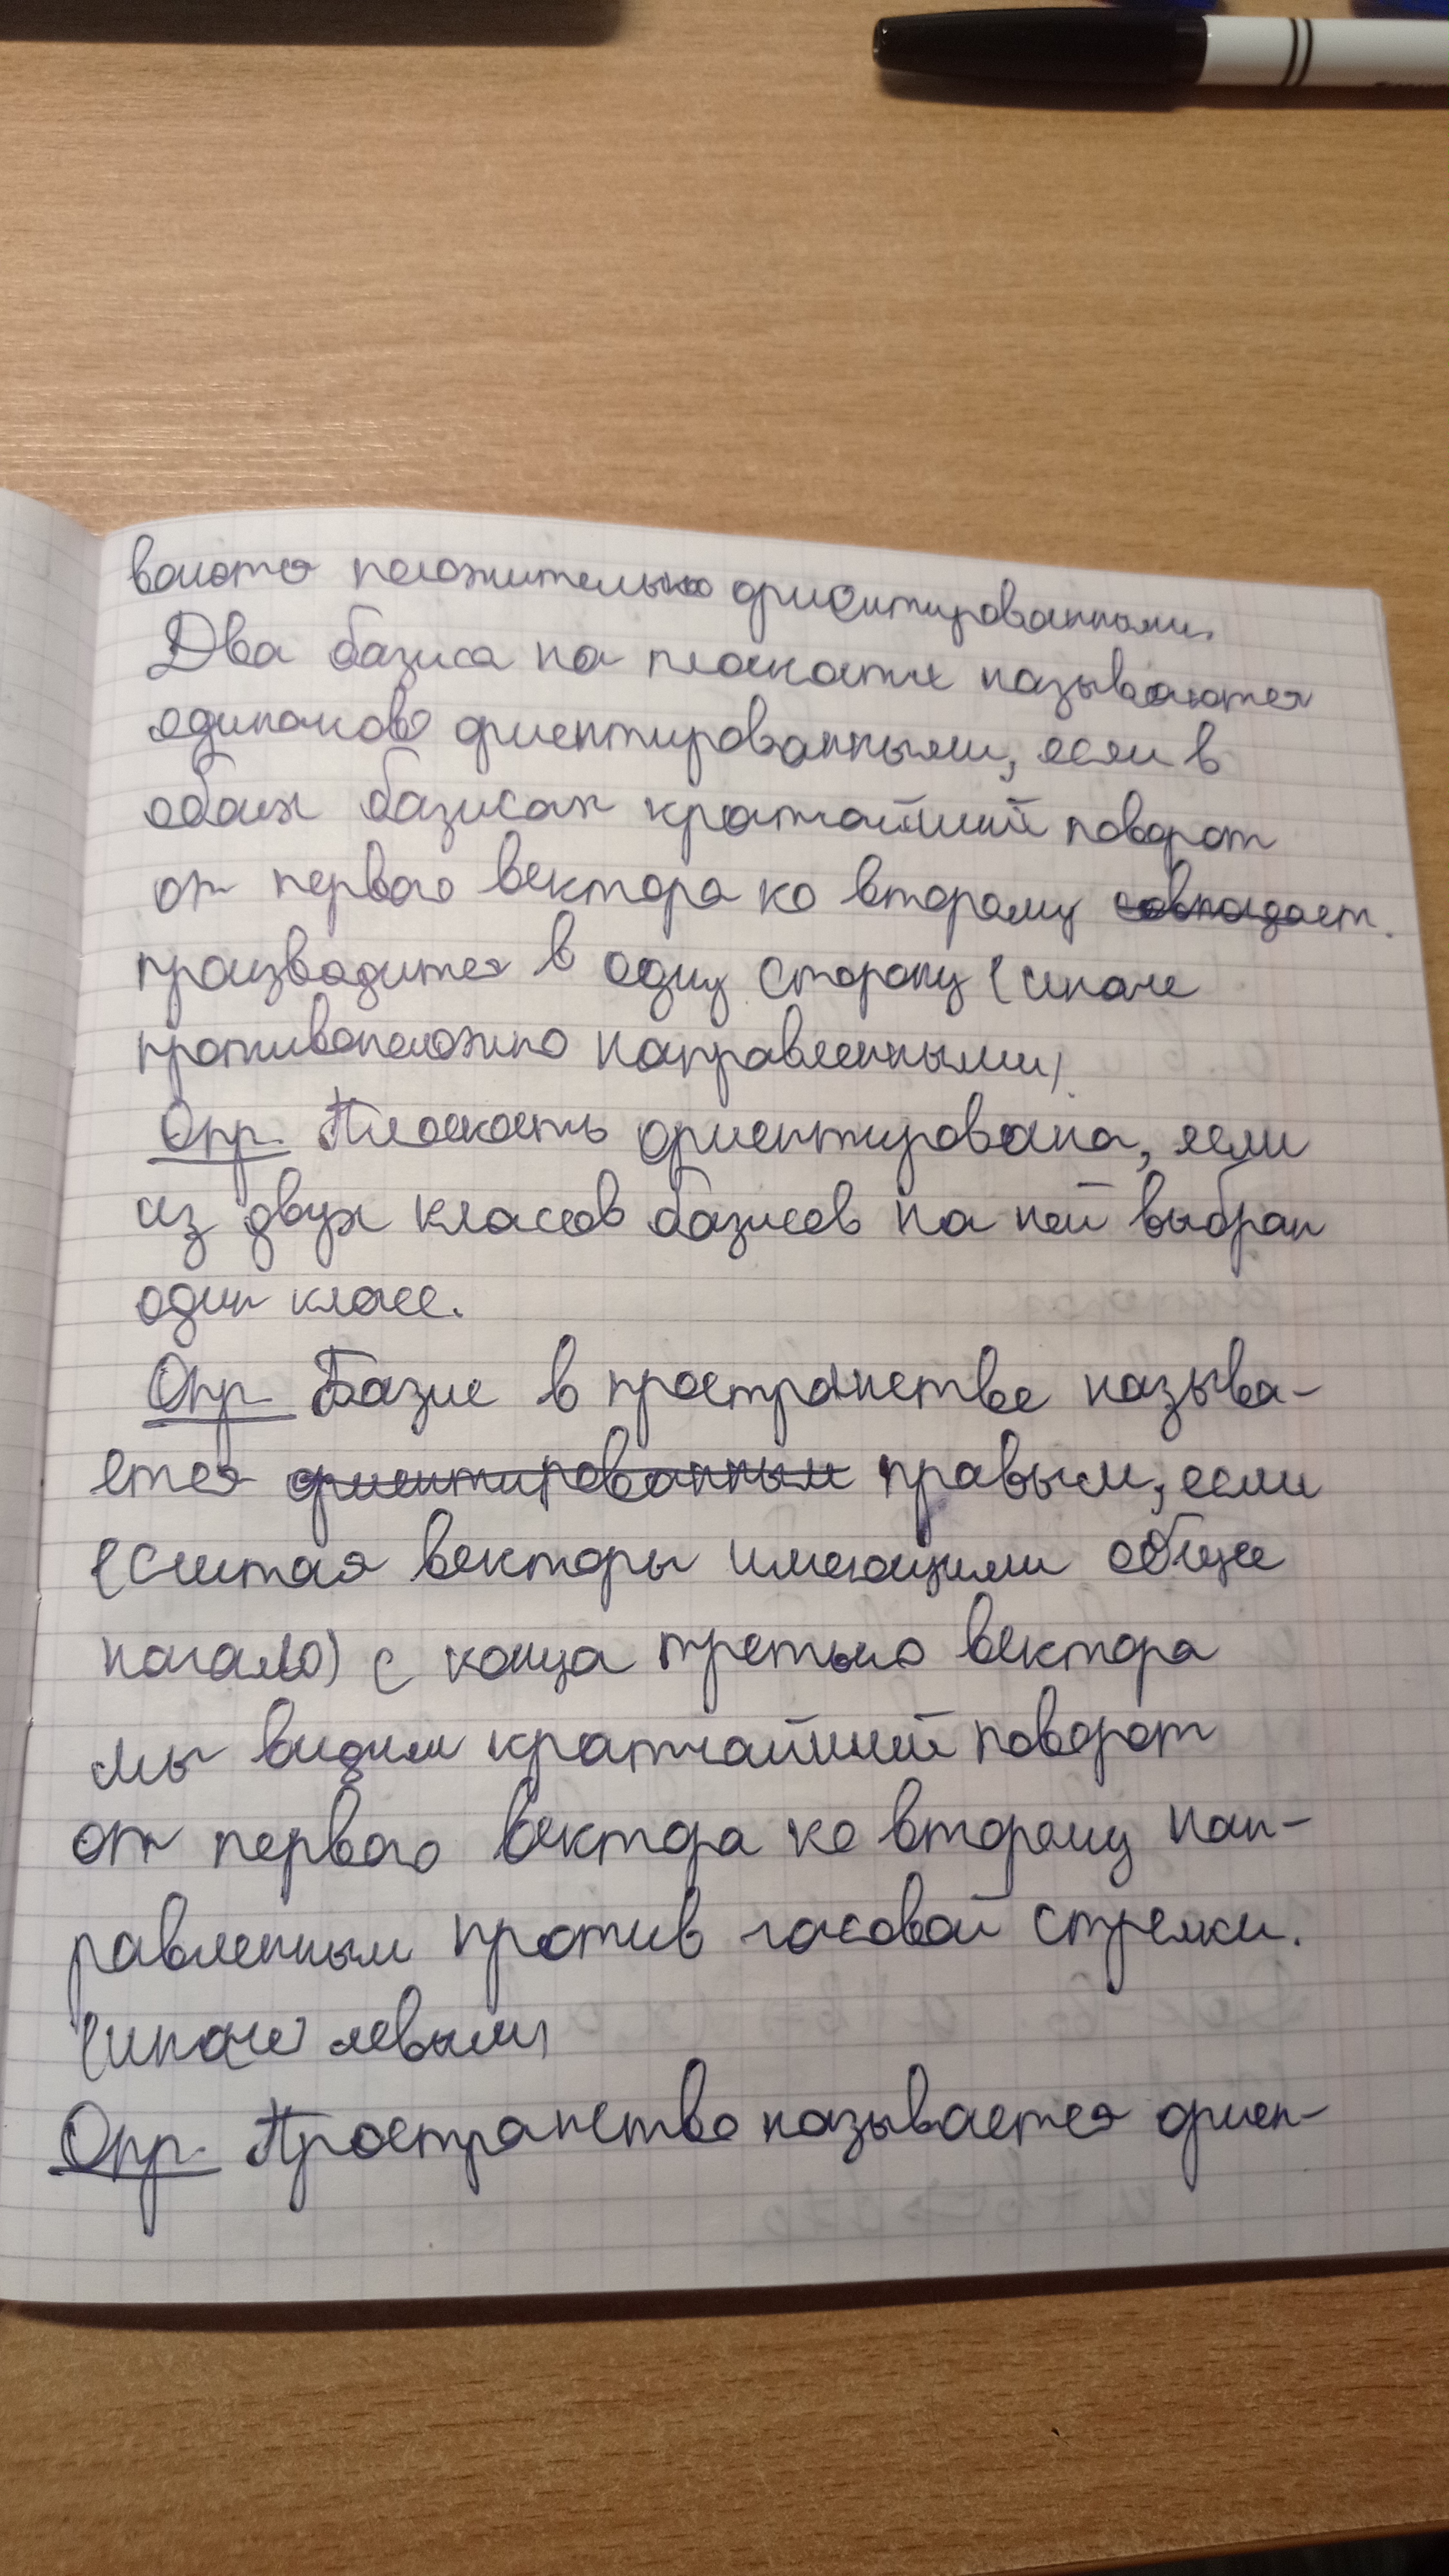 ваются положительно ориентированными.
Два базиса на плоскости называются
одинаково ориентированными, если в
обоих базисах кратчайший поворот
от первого вектора ко второму совпадает.
производится в одну сторону (иначе
противоположно направленными)
Опр. Плоскость ориентирована, если
из двух классов базисов на ней выбран
один класс.
Опр. Базис в пространстве называ-
ется ориентированным правым, если
(считая векторы имеющими общее
начало) с конца третьего вектора
мы видим кратчайший поворот
от первого вектора ко второму нап-
равленным против часовой стрелки.
(иначе левым)
Опр. Пространство называется ориен-